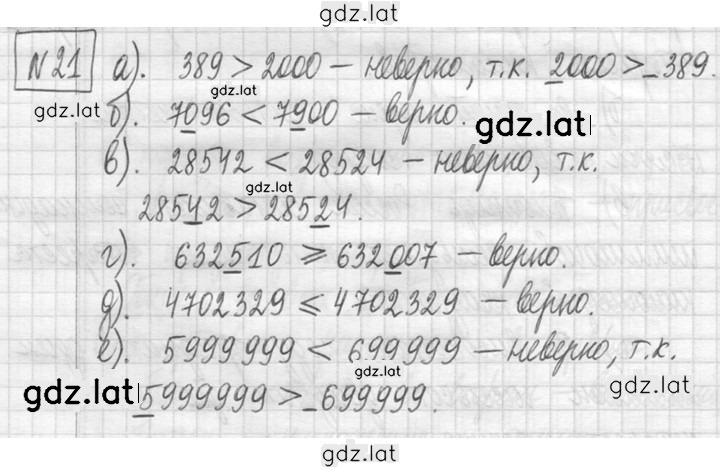 gdz.lat
N 21 а). 389 > 2000 – неверно, т.к. 2000 > _389.
gdz.lat
gdz.lat
б). 7096 < 7900 – верно.
gdz.lat
в). 28542 < 28524 – неверно, т.к.
gdz.lat
28542 > 28524.
г). 632510 ⩾ 632007 – верно.
д). 4702329 ⩽ 4702329 – верно.
е). 5999999 < 699999 – неверно, т.к.
gdz.lat
gdz.lat
5999999 > _699999.
gdz.lat